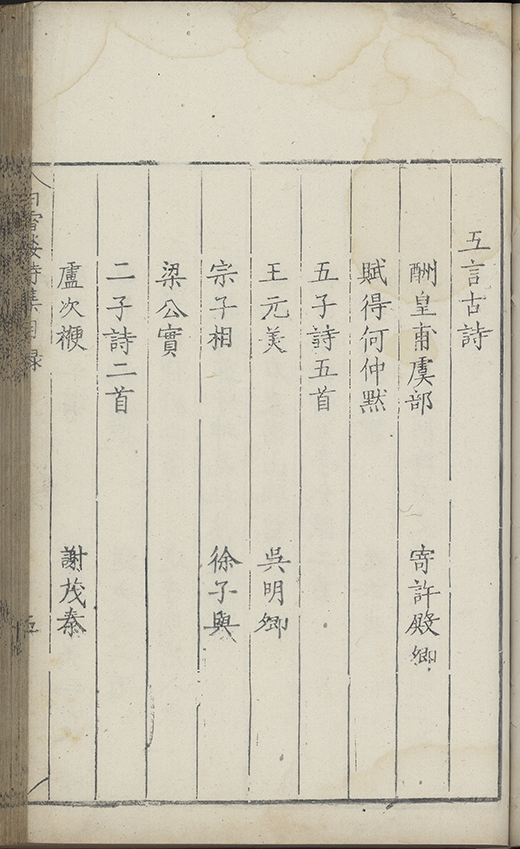 五言古詩
酬皇甫虞部 寄許殿卿
賦得何仲默
五子詩五首
王元美 吳明卿
宗子相 徐子與
梁公實
二子詩二首
盧次楩 謝茂秦
白雪樓詩集目錄 五